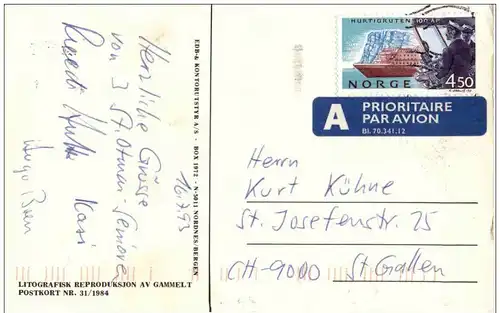 Herzliche Grüsse
von 3 St. Otmar-Senioren
Kasi
16.7.93
LITOGRAFISK REPRODUKSJON AV GAMMELT
POSTKORT NR. 31/1984
EDB-& KONTORUTSTYR A/S - BOX 1972 - N-5011 NORDNES/BERGEN
HURTIGRUTEN 100 ÅR
NORGE 4.50
A PRIORITAIRE
PAR AVION
Bl. 70.341.12
Herrn
Kurt Kühne
St. Josefenstr. 25
CH-9000 St Gallen